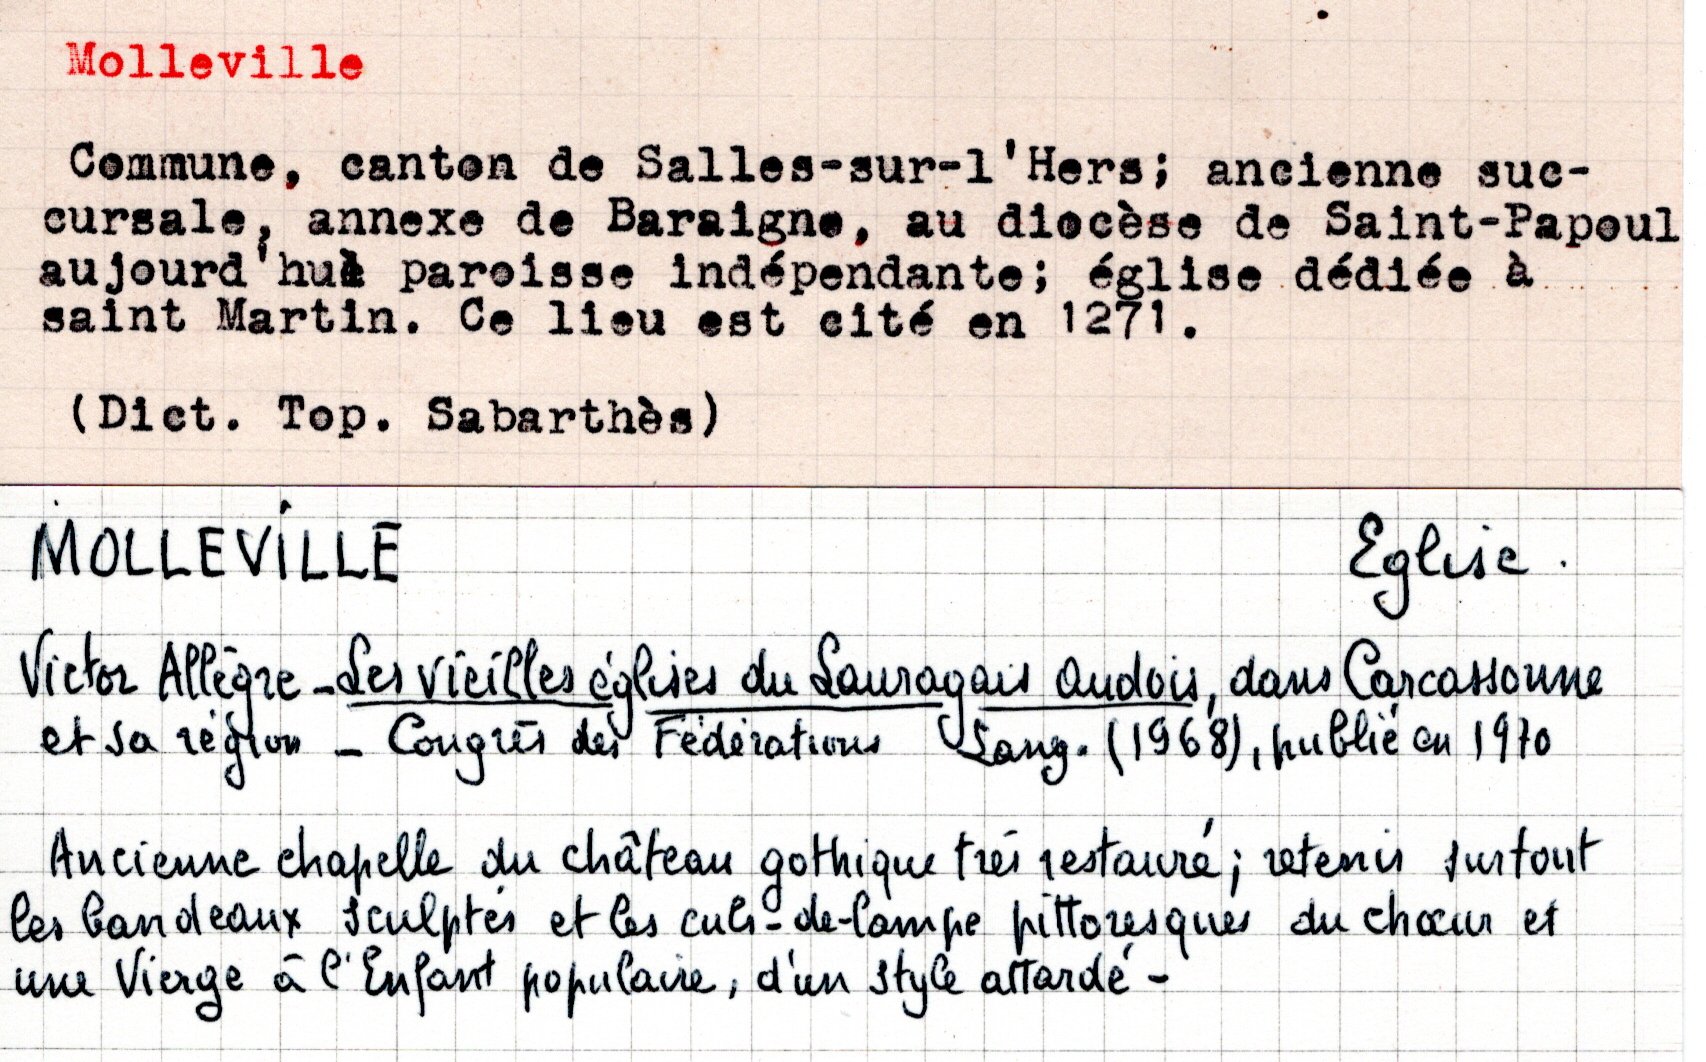 Molleville
Commune, canton de Salles-sur-l'Hers; ancienne suc-
cursale, annexe de Baraigne, au diocèse de Saint-Papoul
aujourd'hui paroisse indépendante; église dédiée à
saint Martin. Ce lieu est cité en 1271.
(Dict. Top. Sabarthès)
MOLLEVILLE Eglise.
Victor Allègre - Les vieilles églises du Lauragais Audois, dans Carcassonne
et sa région - Congrès des Fédérations Lang. (1968), publié en 1970
Ancienne chapelle du château gothique très restauré; retenir surtout
les bandeaux sculptés et les culs-de-lampe pittoresques du chœur et
une Vierge à l'Enfant populaire, d'un style attardé -